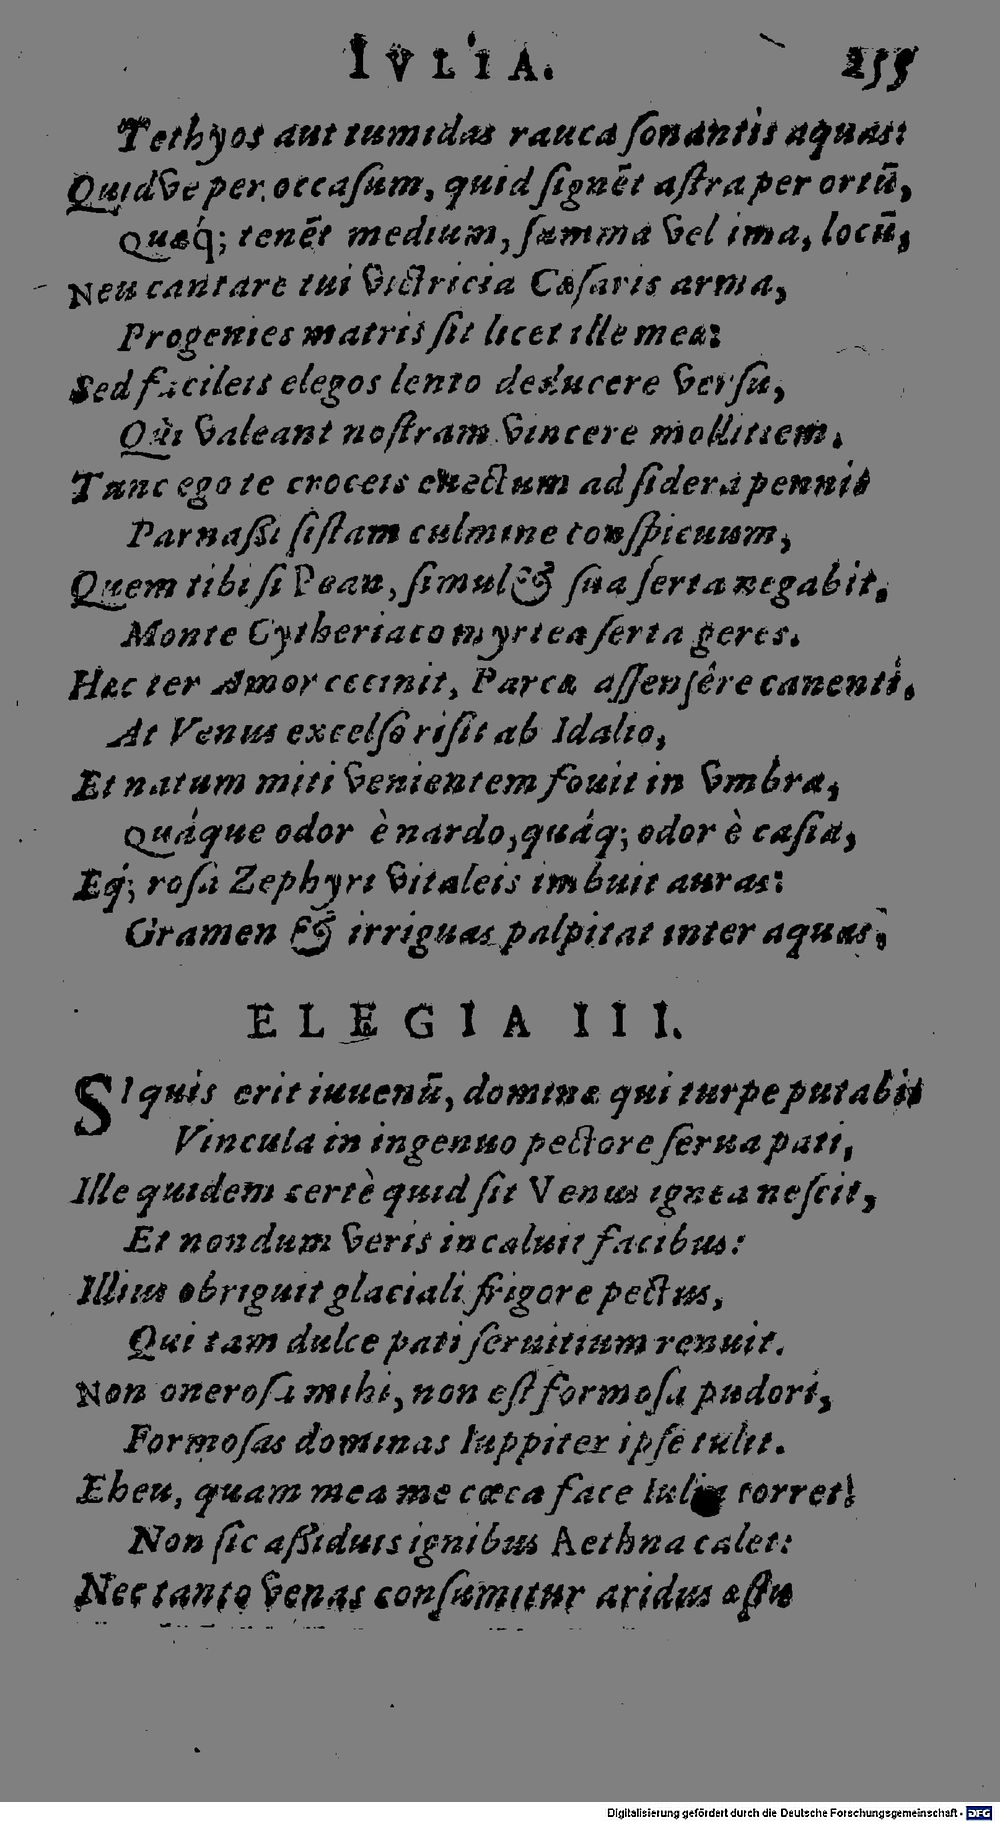 IVLIA. 255
Tethyos aut tumidas rauca ſonantis aquas:
Quidve per occaſum, quid ſignēt aſtra per ortū,
Quæq́; tenēt medium, ſumma vel ima, locū,
Neu cantare tui victricia Cæſaris arma,
Progenies matris ſit licet ille meæ:
Sed facileis elegos lento deducere verſu,
Qui valeant noſtram vincere mollitiem.
Tunc ego te croceis euectum ad ſidera pennis
Parnaſsi ſiſtam culmine conſpicuum,
Quem tibi ſi Pæan, ſimul & ſua ſerta negabit,
Monte Cytheriaco myrtea ſerta geres.
Hæc ter Amor cecinit, Parcæ aſſenſêre canenti.
At Venus excelſo riſit ab Idalio,
Et natum miti venientem fouit in vmbra,
Quáque odor è nardo, quáq; odor è caſia,
Eq́; roſa Zephyri vitaleis imbuit auras:
Gramen & irriguas palpitat inter aquas,
ELEGIA III.
SI quis erit iuuenū, dominæ qui turpe putabit
Vincula in ingenuo pectore ſerua pati,
Ille quidem certè quid ſit Venus ignea neſcit,
Et nondum veris incaluit facibus:
Illius obriguit glaciali frigore pectus,
Qui tam dulce pati ſeruitium renuit.
Non oneroſa mihi, non eſt formoſa pudori,
Formoſas dominas Iuppiter ipſe tulit.
Eheu, quam mea me cæca face Iulia torret!
Non ſic aſsiduis ignibus Aethna calet:
Nec tanto venas conſumitur aridus æſtu
Digitalisierung gefördert durch die Deutsche Forschungsgemeinschaft - DFG